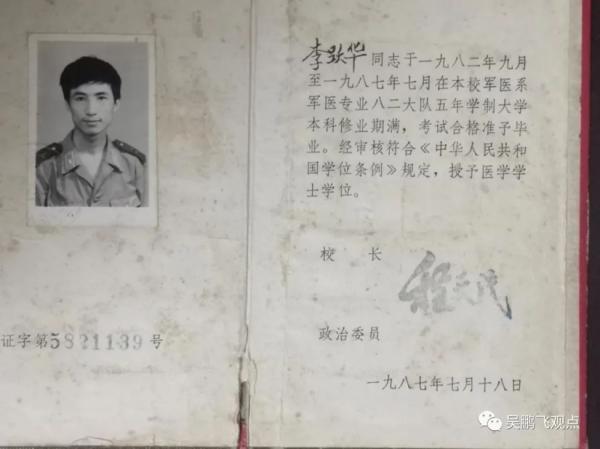 证字第5821139号
李跃华同志于一九八二年九月
至一九八七年七月在本校军医系
军医专业八二大队五年学制大学
本科修业期满，考试合格准予毕
业。经审核符合《中华人民共和
国学位条例》规定，授予医学学
士学位。
校 长
程天民
政治委员
一九八七年七月十八日
吴鹏飞观点